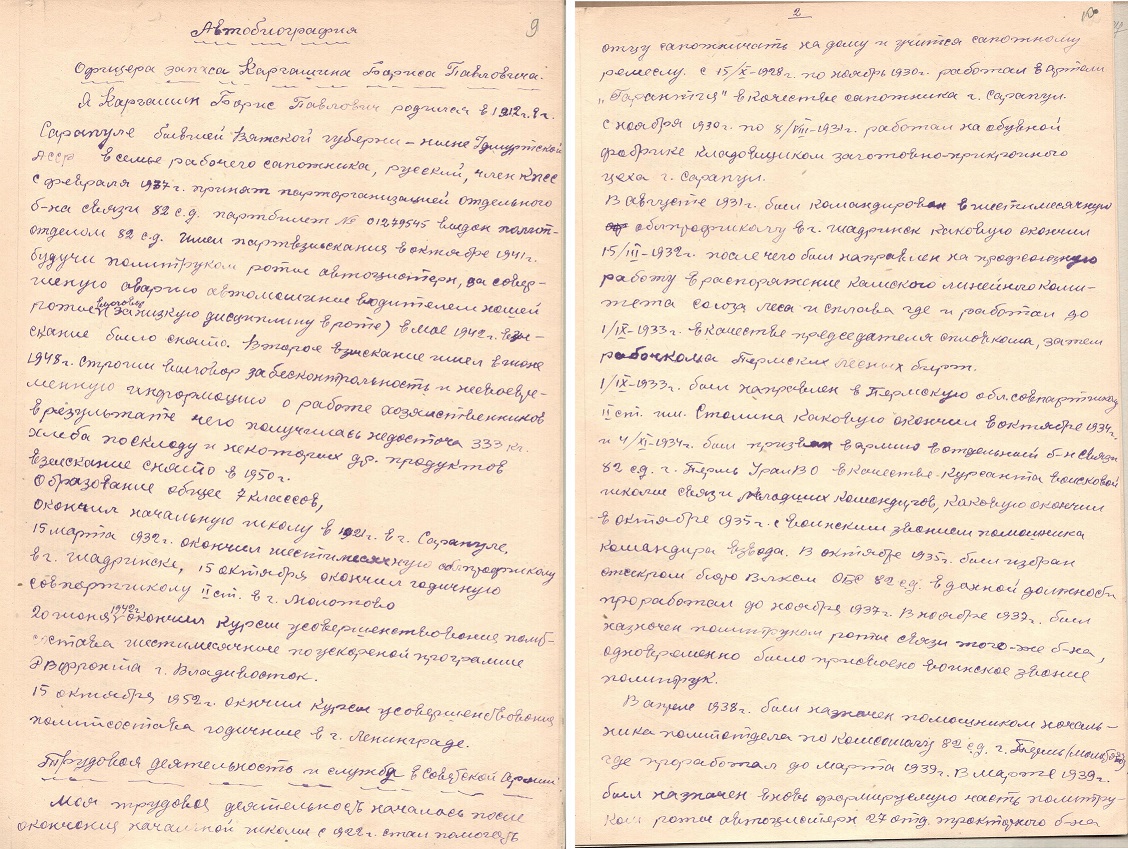 9
Автобиография
Офицера запаса Каргашина Бориса Павловича.
Я Каргашин Борис Павлович родился в 1912 г. в г.
Сарапуле бывшей Вятской губерни – ныне Удмуртской
АССР в семье рабочего сапожника, русский, член КПСС
с февраля 1937 г. принят парторганизацией отдельного
б-на связи 82 с.д. партбилет № 01279545 выдан полит-
отделом 82 с.д. Имел партвзыскания в октябре 1941 г.
будучи политруком роты автоцистерн, за совер-
шеную аварию автомашине водителем нашей
роты (выговор за низкую дисциплину в роте) в мае 1942 г. взы-
скание было снято. Второе взыскание имел в июне
1948 г. строгий выговор за бесконтрольность и несвоевре-
менную информацию о работе хозяйственников
в результате чего получилась недостача 333 кг.
хлеба по складу и некоторых др. продуктов
взыскание снято в 1950 г.
Образование общее 7 классов,
окончил начальную школу в 1921 г. в г. Сарапуле,
15 марта 1932 г. окончил шестимесячную облпрофшколу
в г. Шадринске, 15 октября окончил годичную
совпартшколу II ст. в г. Молотово
20 июня 1942 г. окончил курсы усовершенствование полит-
става шестимесячные по ускореной программе
ДВфронта г. Владивосток.
15 октября 1952 г. окнчил курсы усовершенствования
политсостава годичные в г. Ленинграде.
Трудовая деятельность и служба в Советской Армии
Моя трудовая деятельность началась после
окончания начальной школы с 1922 г. стал помогать
2
10
отцу сапожничать на дому и учится сапожному
ремеслу. с 15/X-1928 г. по ноябрь 1930 г. работал в артели
„Гарантия" в качестве сапожника г. Сарапул.
С ноября 1930 г. по 8/VIII-1931 г. работал на обувной
фабрике кладовщиком заготовно-прикроичного
цеха г. Сарапул.
В августе 1931 г. был командирован в шестимесячную
облпрофшколу в г. Шадринск каковую окончил
15/III-1932 г. после чего был направлен на профсоюзную
работу в распоряжение камского линейного коми-
тета союза леса и сплава где и работал до
1/IX-1933 г. в качестве председателя сплавкома, затем
рабочкома Пермских лесных бирж.
1/IX-1933 г. был направлен в Пермскую обл. совпартшколу
II ст. им. Сталина каковую окончил в октябре 1934 г.
и 4/XI-1934 г. был призван в армию в отдельный б-н связи
82 с.д. г. Пермь УралВО в качестве курсанта войсковой
школы связи младших командиров, каковую окончил
в октябре 1935 г. с воинским званием помощника
командира взвода. В октябре 1935 г. был избран
отсекром бюро ВЛКСМ ОБС 82 с.д. в данной должности
проработал до ноября 1937 г. В ноябре 1937 г. был
назначен политруком роты связи того-же б-на,
одновременно было присвоено воинское звание
политрук.
В апреле 1938 г. был назначен помощником началь-
ника политотдела по комсомолу 82 с.д. г. Пермь (Молотово)
где проработал до марта 1939 г. В марте 1939 г.
был назначен вновь формируемую часть политру-
ком роты автоцистерн 27 отд. тракторного б-на